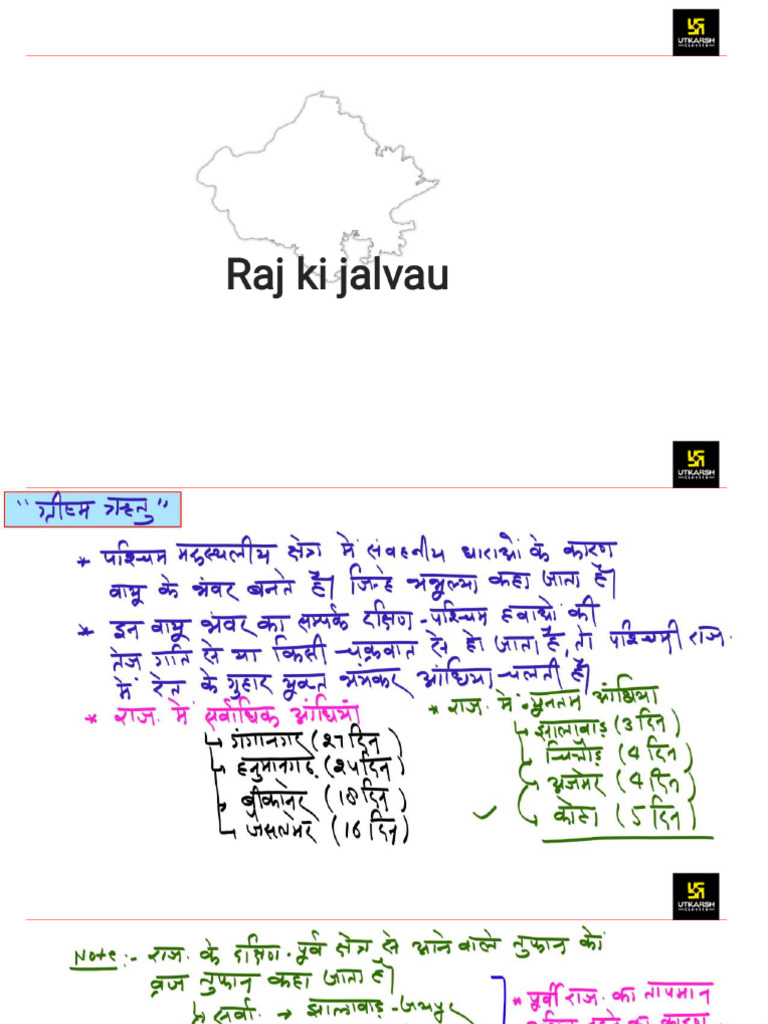 UTKARSH
CLASSES
Raj ki jalvau
UTKARSH
CLASSES
"ग्रीष्म ऋतु"
* पश्चिम मरुस्थलीय क्षेत्र में संवहनीय धाराओं के कारण
वायु के भंवर बनते हैं। जिन्हे भभूल्या कहा जाता है।
* इन वायु भंवर का सम्पर्क दक्षिण-पश्चिम हवाओं की
तेज गति से या किसी चक्रवात से हो जाता है, तो पश्चिमी राज.
में रेत के गुबार युक्त भयंकर आंधिया चलती है।
* राज. में सर्वाधिक आंधियां
गंगानगर (27 दिन)
हनुमानगढ़ (24 दिन)
बीकानेर (18 दिन)
जैसलमेर (16 दिन)
* राज. में न्यूनतम आंधिया
झालावाड़ (3 दिन)
चित्तौड़ (4 दिन)
अजमेर (4 दिन)
कोटा (5 दिन)
UTKARSH
CLASSES
Note:- राज. के दक्षिण-पूर्व क्षेत्र से आने वाले तुफान को
व्रज तुफान कहा जाता है।
सर्वा. → झालावाड़-जयपुर
* पूर्वी राज. का तापमान